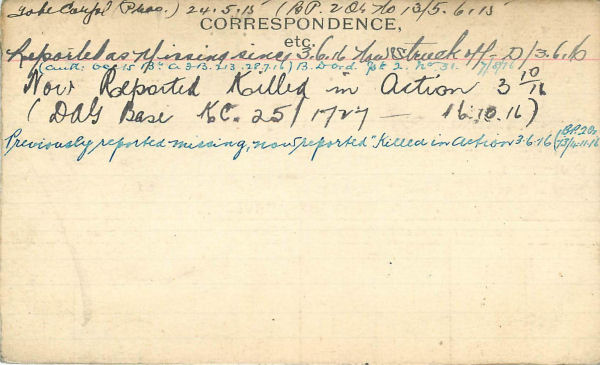 To be Corp'l (Prov.) 24.5.15 (B.P. 2 O. No 13/5.6.15
CORRESPONDENCE,
etc.
Reported as Missing since 3.6.16 Struck off - D/3.6.16
(Auth: 15 Bn 28.7.16) B. D. Ord. Pt 2. No 31.
Now Reported Killed in Action 3 10/16
(DAG Base KC. 25/1727 — 16.10.16)
Previously reported missing, now reported "Killed in action 3.6.16